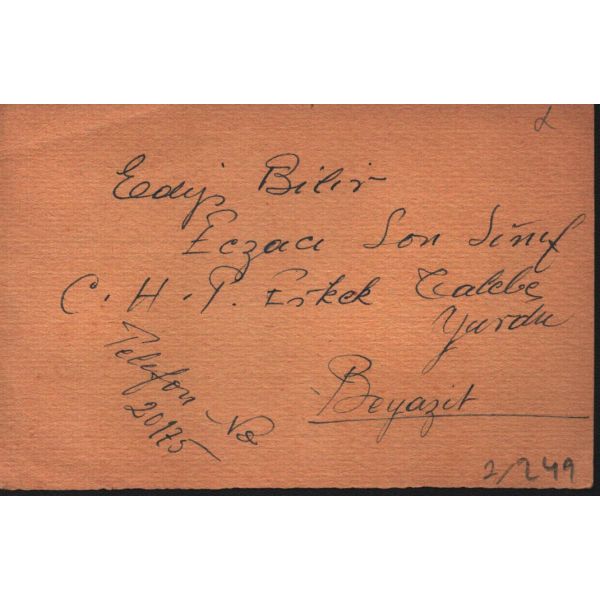 Edip Bilir
Eczacı Son Sınıf
C. H. P. Erkek Talebe
Yurdu
Beyazit
Telefon No
20175
2/249